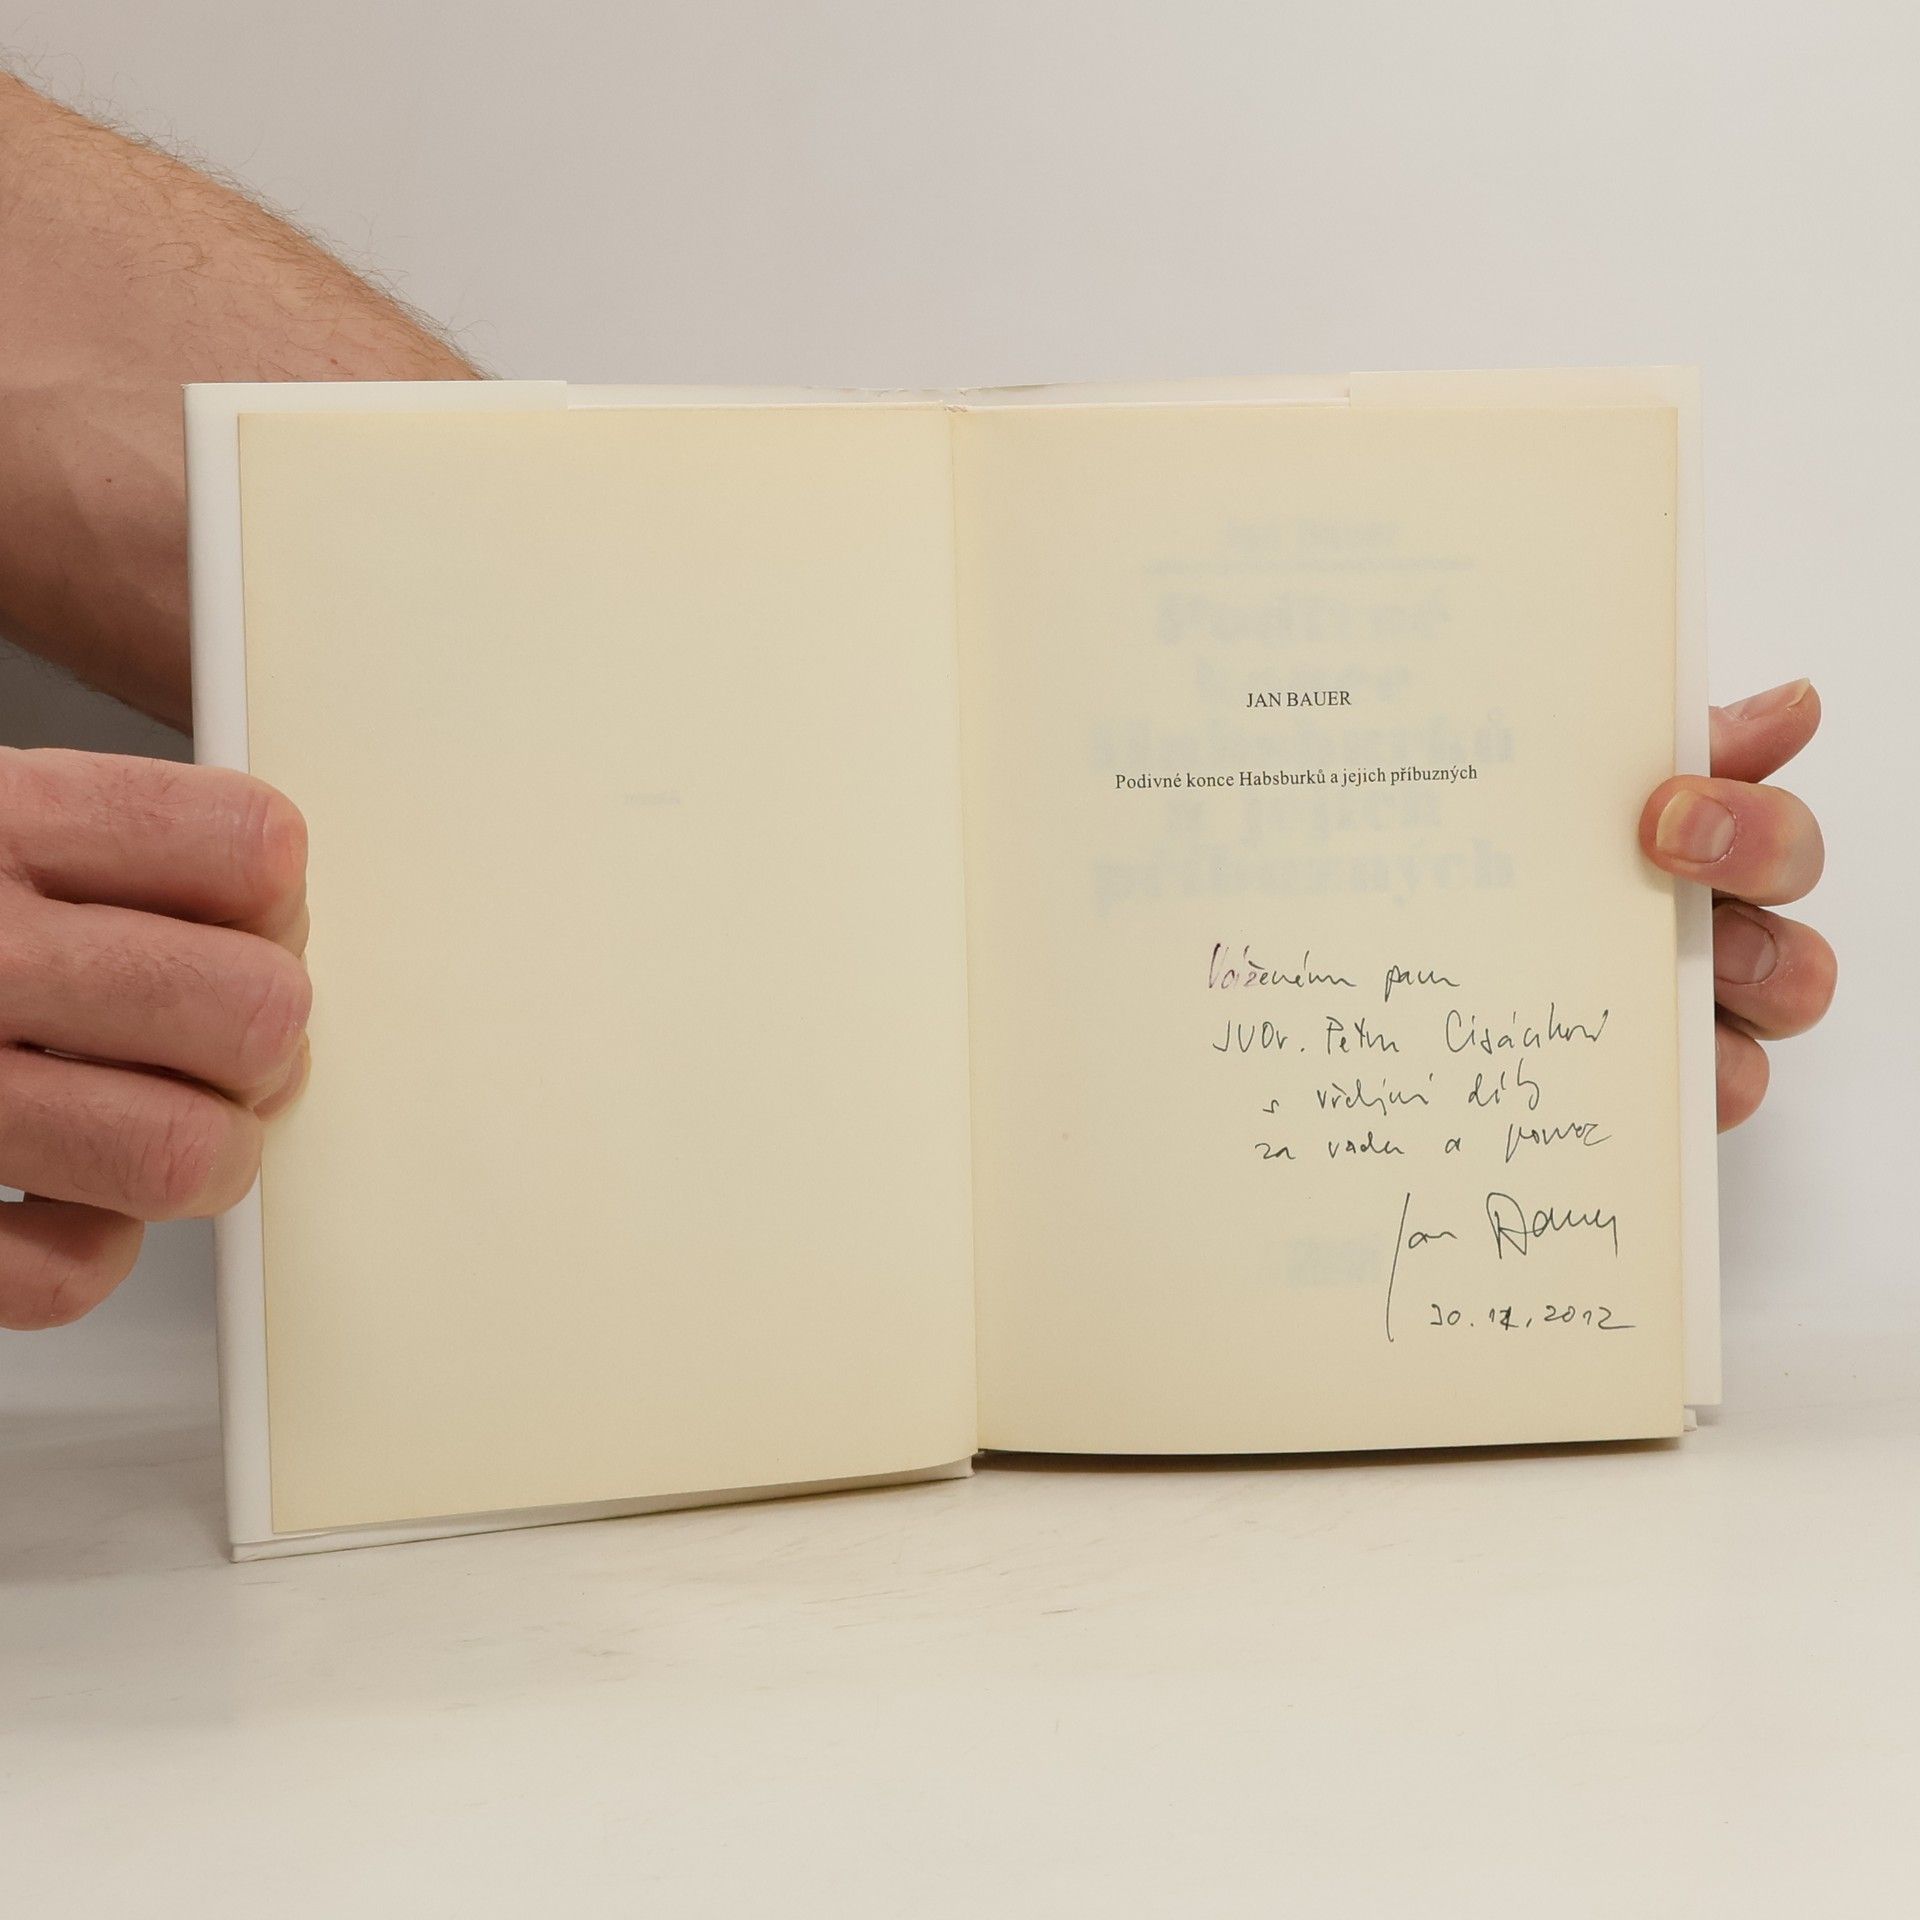 JAN BAUER
Podivné konce Habsburků a jejich příbuzných
Váženému panu
JUDr. Petru
s vřelými díky
za radu a pomoc
Jan Bauer
2012